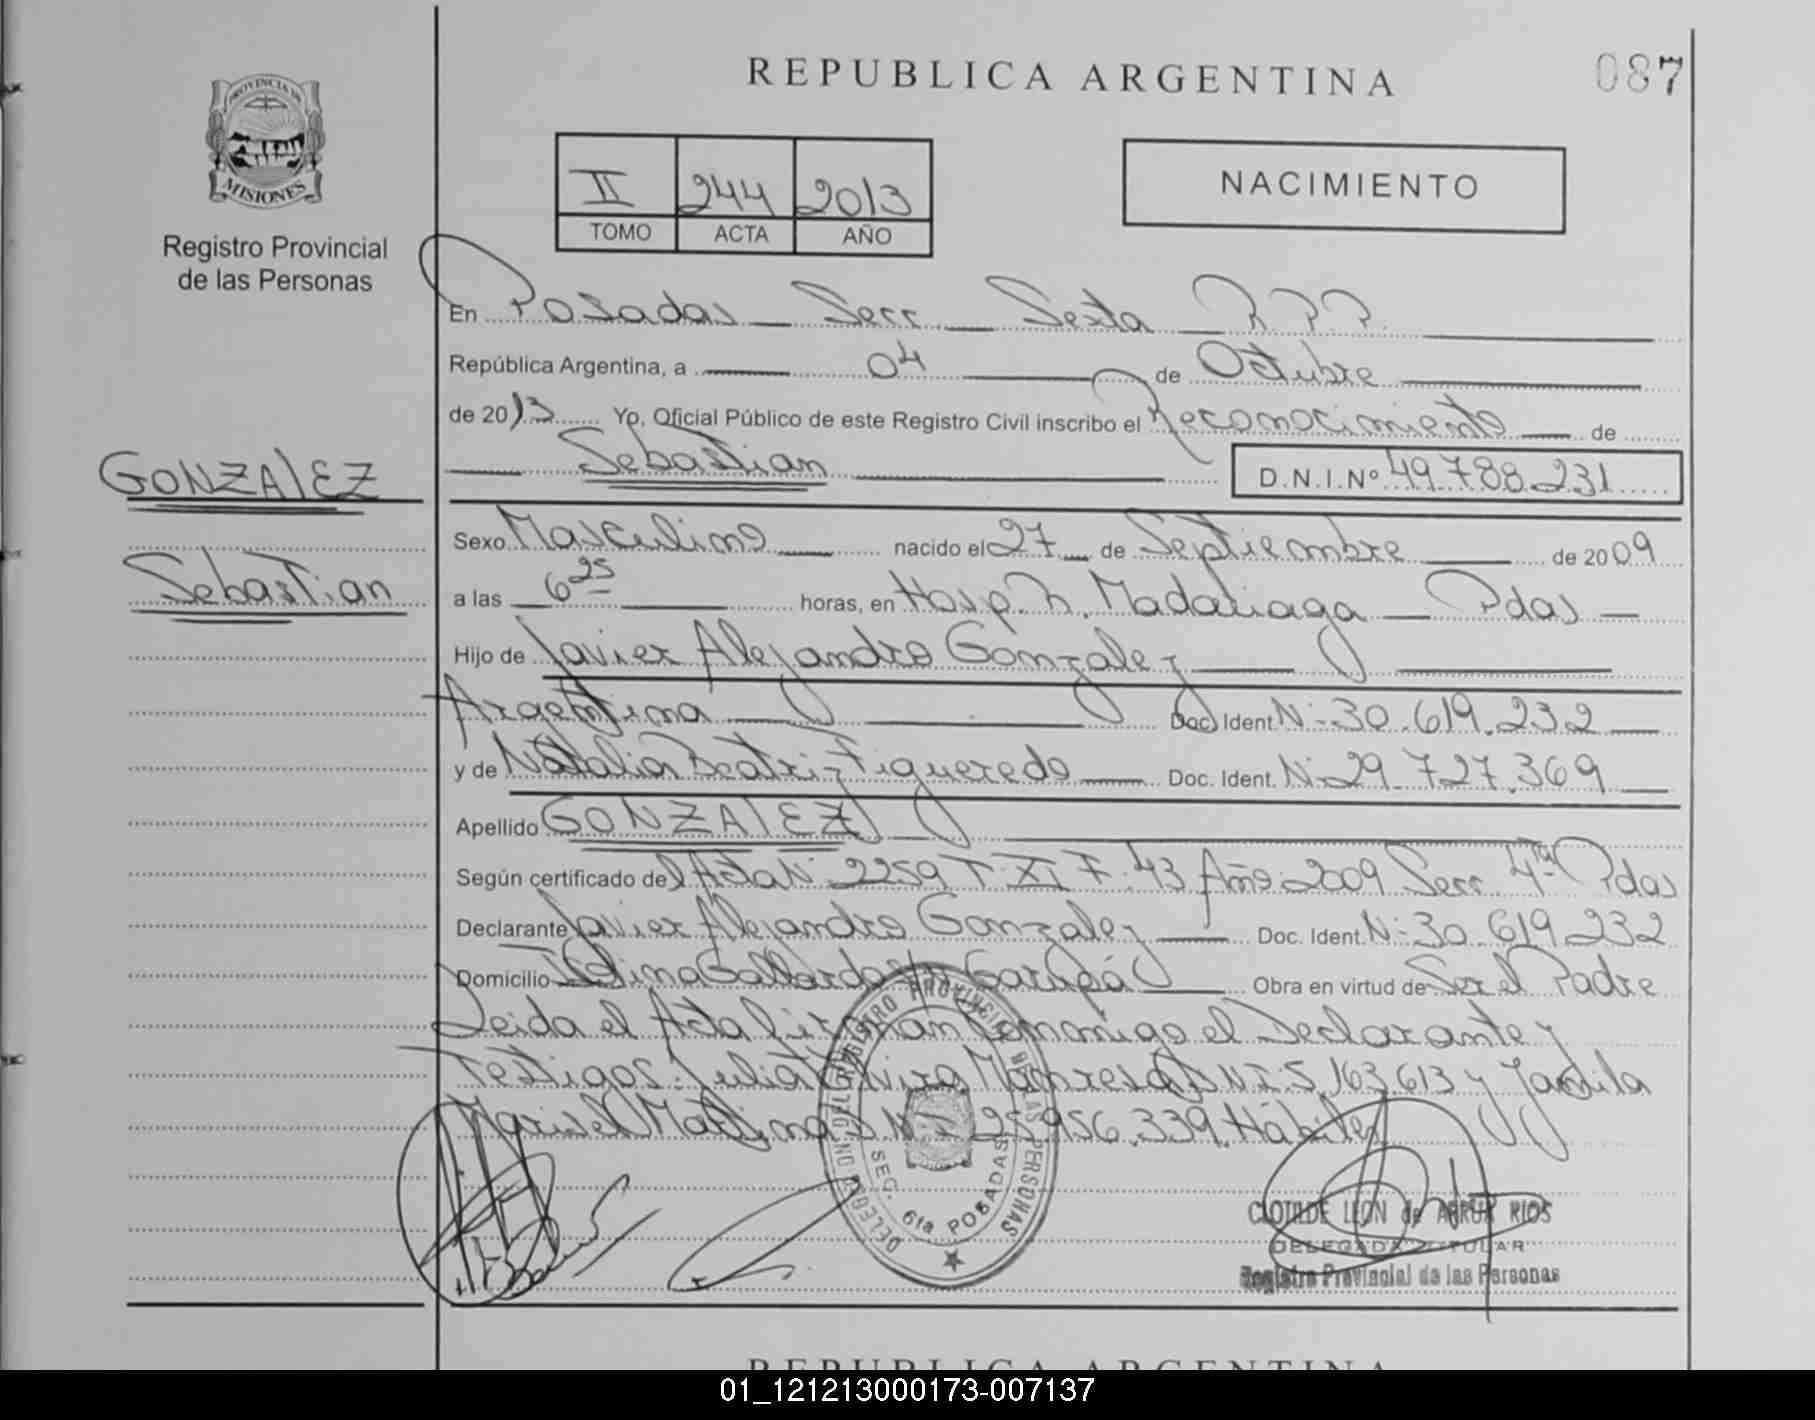 REPUBLICA ARGENTINA
087
PROVINCIA DE
MISIONES
Registro Provincial
de las Personas
II 244 2013
TOMO ACTA AÑO
NACIMIENTO
En Posadas Secc Sexta R.P.P.
República Argentina, a 04 de Octubre
de 2013 Yo, Oficial Público de este Registro Civil inscribo el Reconocimiento de
Sebastian D.N.I.Nº 49.788.231
GONZALEZ
Sebastian
Sexo Masculino nacido el 27 de Septiembre de 2009
a las 6 25 horas, en Hosp. R. Madariaga Pdas
Hijo de Javier Alejandro Gonzalez
Argentina Doc. Ident. Nº 30.619.232
y de Natalia Beatriz Figueredo Doc. Ident. Nº 29.727.369
Apellido GONZALEZ
Según certificado del Acta Nº 2259 T. XI F. 43 Año 2009 Secc 4ta Pdas
Declarante Javier Alejandro Gonzalez Doc. Ident. Nº 30.619.232
Domicilio Gallardo Garupá Obra en virtud de Ser el Padre
Leida el Acta firman conmigo el Declarante y
Testigos: Julia Elvira D.N.I. 5.163.613 y Yamila
Marisel Martinez D.N.I. 25.956.339. Hábiles
DELEGACION DEL REGISTRO PROVINCIAL DE LAS PERSONAS
SEC. 6ta. POSADAS
CLOTILDE LEON de ABRUX RIOS
DELEGADA TITULAR
Registro Provincial de las Personas
REPUBLICA ARGENTINA
01_121213000173-007137